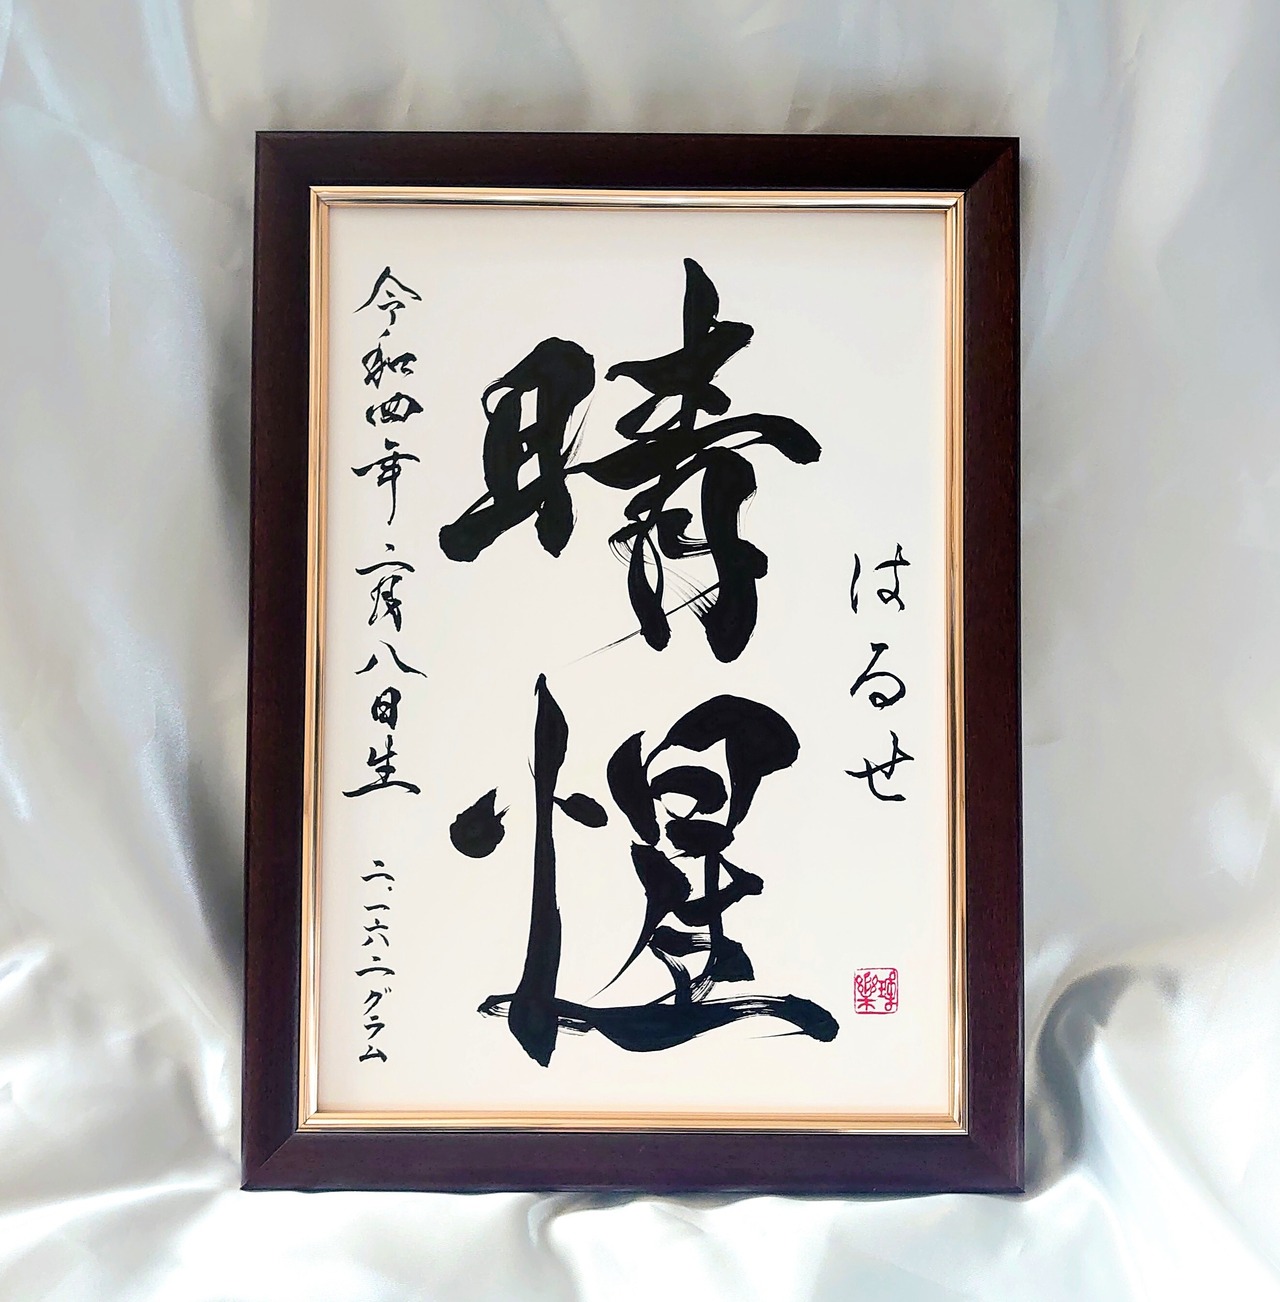 はるせ
晴惺
令和四年二月八日生 二、一六二グラム